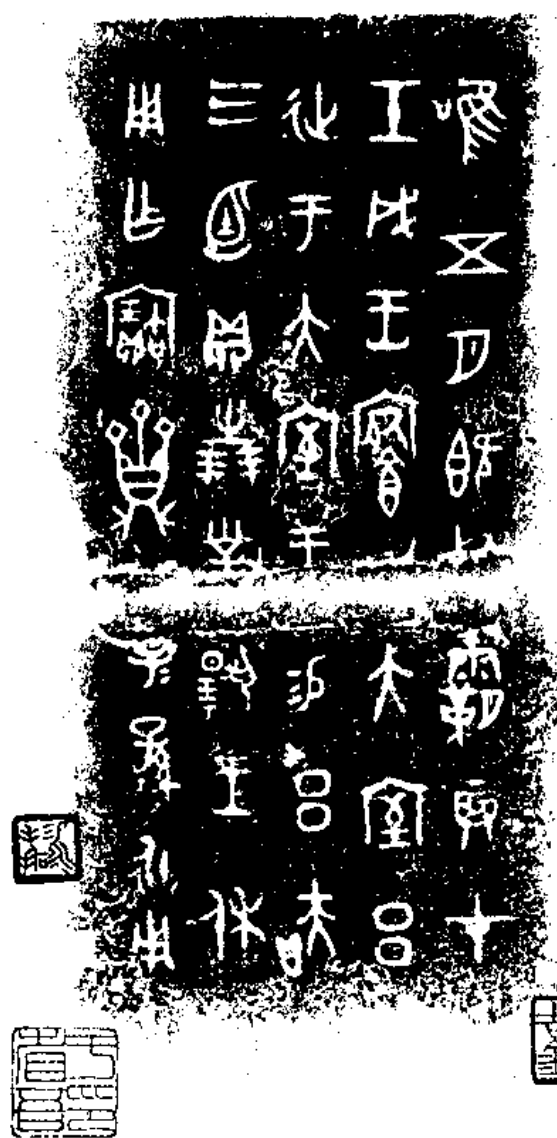 唯五月既死霸辰才
壬戌王于大室呂
征于大室王易呂
三卣貝卅朋對揚王休
用乍寶子孫永用